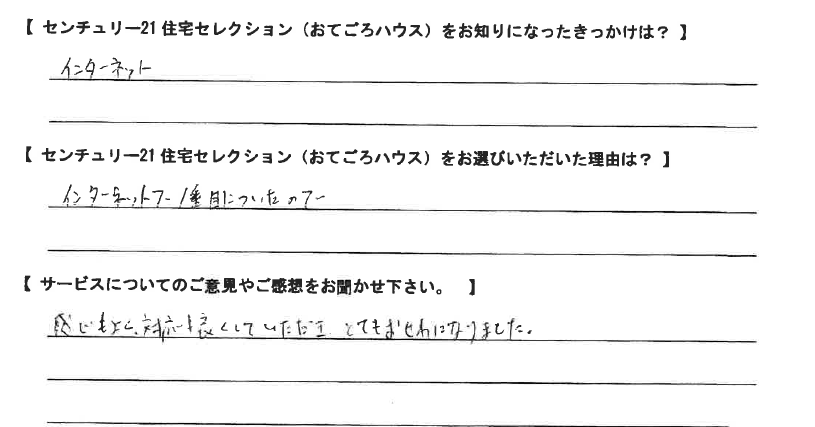 【 センチュリー21 住宅セレクション（おてごろハウス）をお知りになったきっかけは？ 】
インターネット
【 センチュリー21 住宅セレクション（おてごろハウス）をお選びいただいた理由は？ 】
インターネットで1番目についたので
【 サービスについてのご意見やご感想をお聞かせ下さい。 】
感じもよく、対応も良くしていただき とてもおせわになりました。